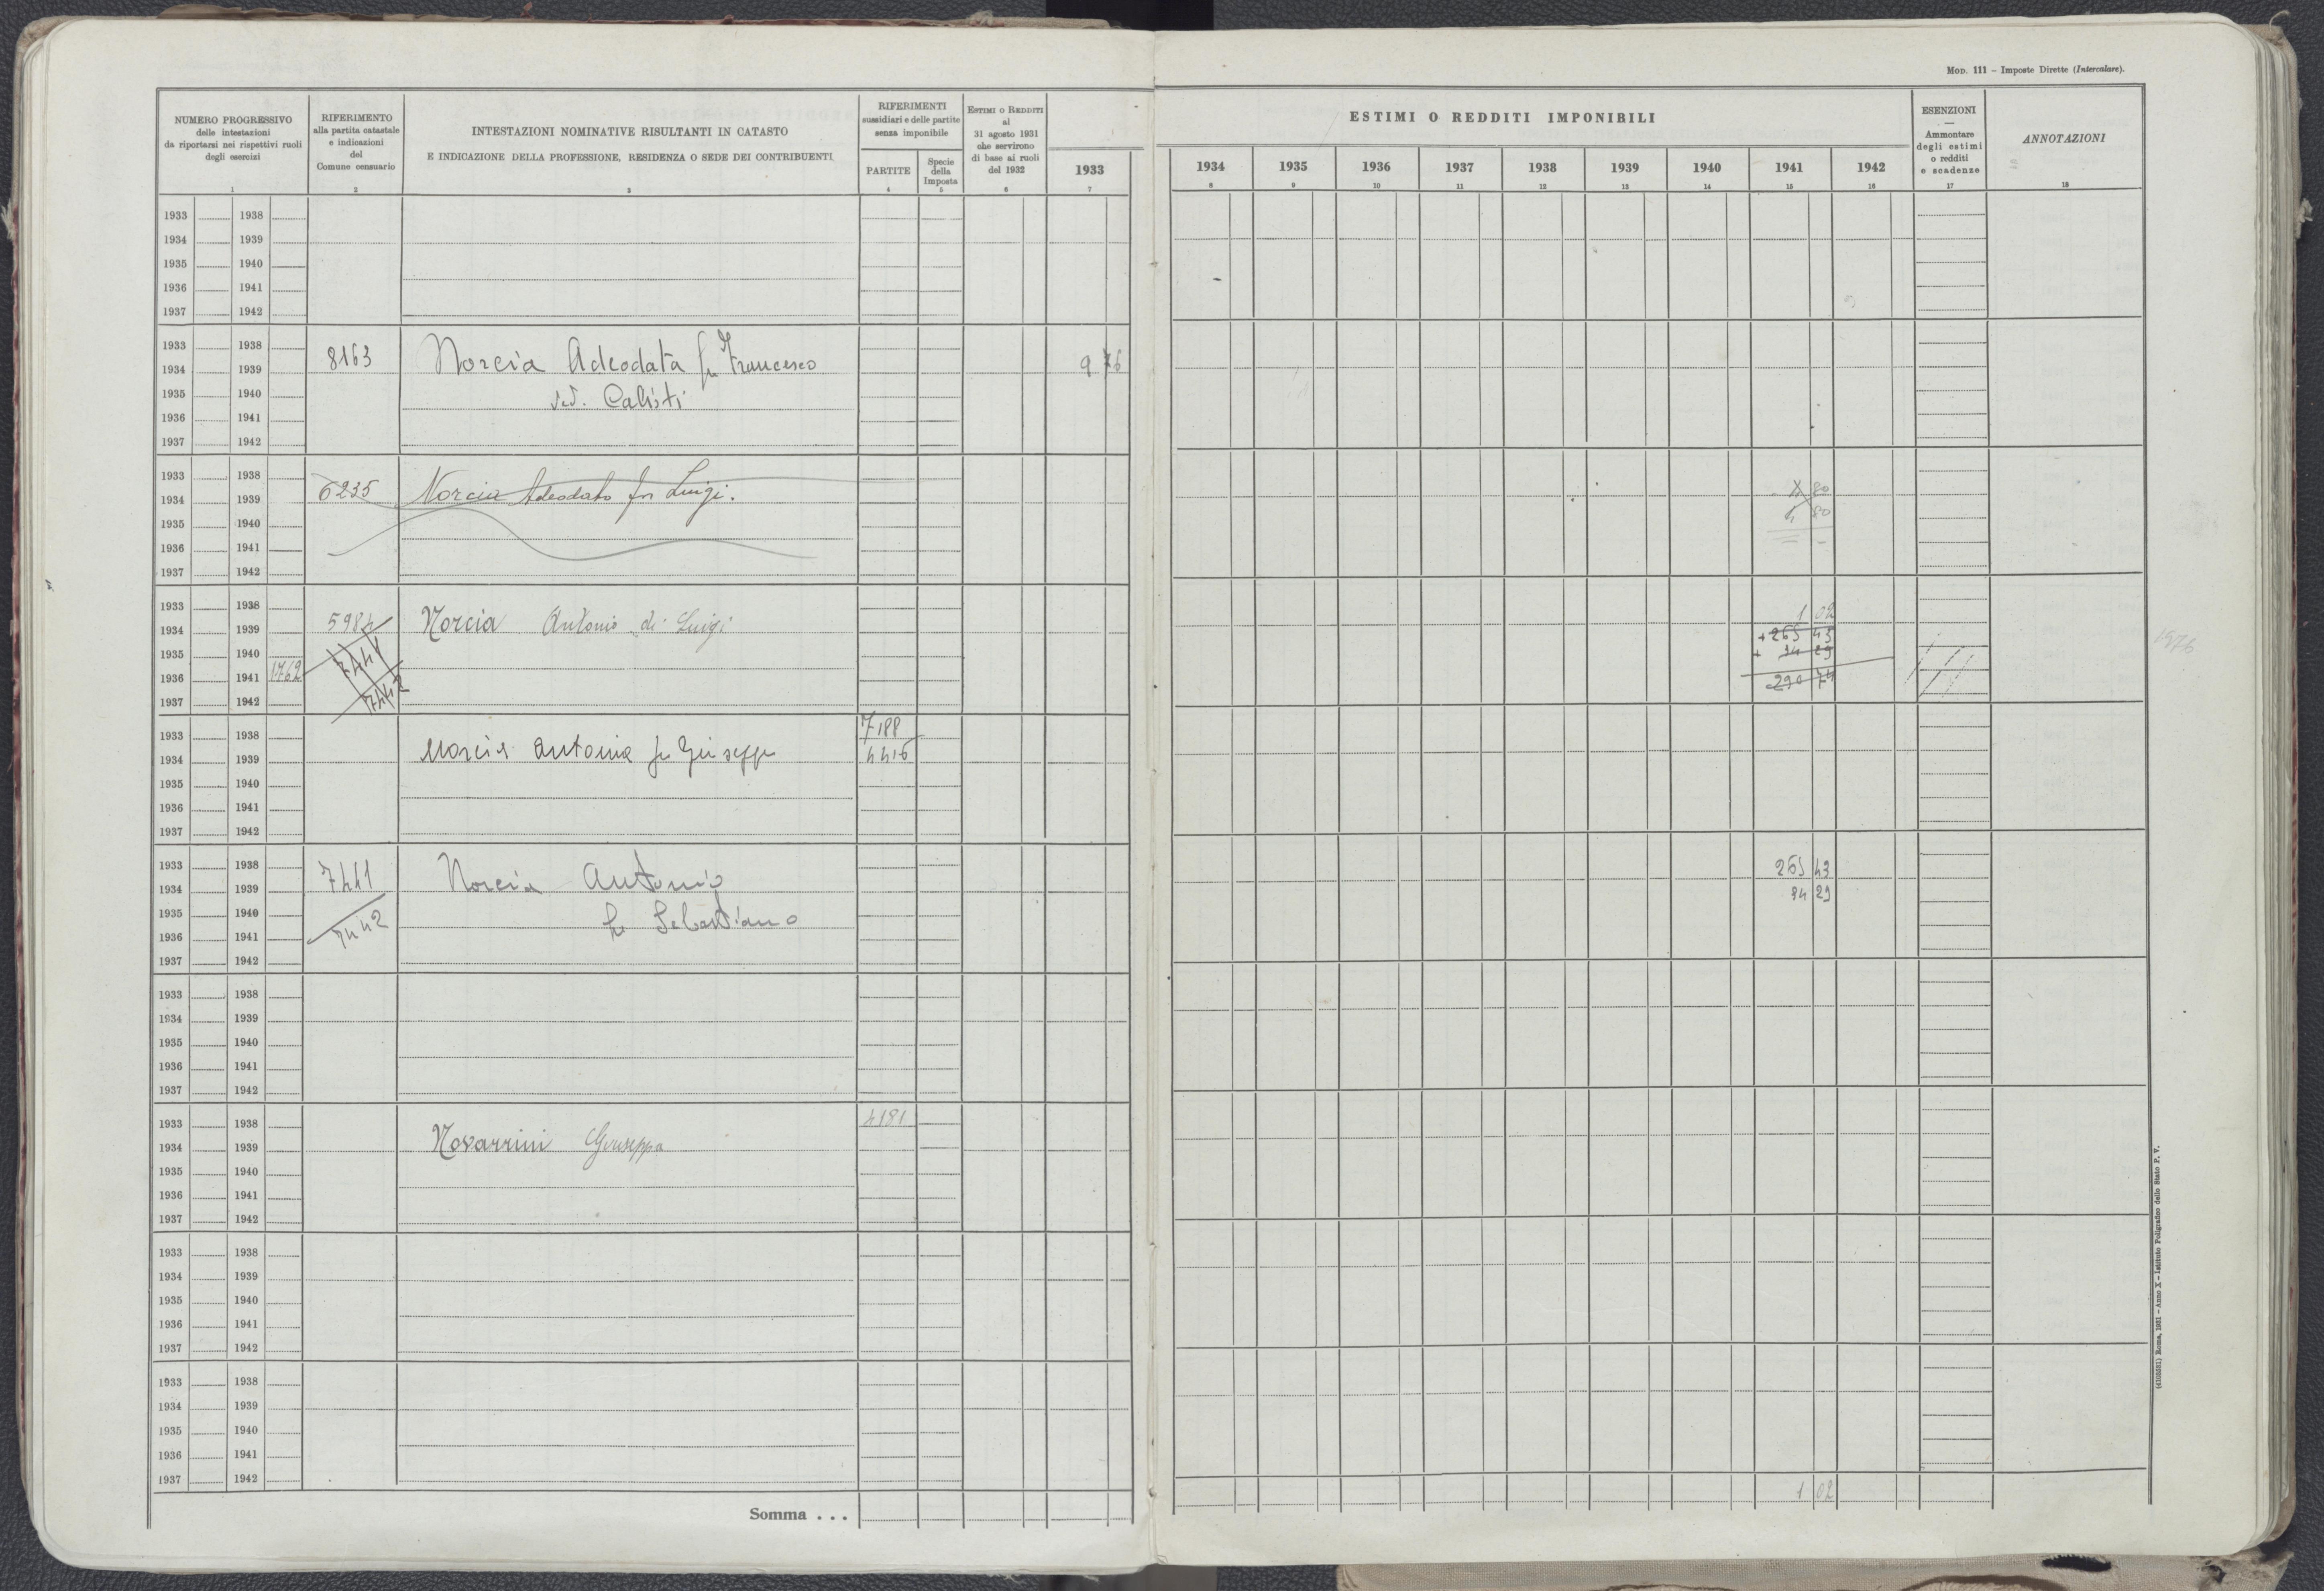 MOD. 111 – Imposte Dirette (Intercalare).
NUMERO PROGRESSIVO
delle intestazioni
da riportarsi nei rispettivi ruoli
degli esercizi
1
RIFERIMENTO
alla partita catastale
e indicazioni
del
Comune censuario
2
INTESTAZIONI NOMINATIVE RISULTANTI IN CATASTO
E INDICAZIONE DELLA PROFESSIONE, RESIDENZA O SEDE DEI CONTRIBUENTI
3
RIFERIMENTI
sussidiari e delle partite
senza imponibile
PARTITE
4
Specie
della
Imposta
5
ESTIMI O REDDITI
al
31 agosto 1931
che servirono
di base ai ruoli
del 1932
6
1933
7
ESTIMI O REDDITI IMPONIBILI
1934 1935 1936 1937 1938 1939 1940 1941 1942
8 9 10 11 12 13 14 15 16
ESENZIONI
—
Ammontare
degli estimi
o redditi
e scadenze
17
ANNOTAZIONI
18
1933 1938
1934 1939
1935 1940
1936 1941
1937 1942
1933 1938
1934 1939 8163 Norcia Adeodata fu Francesco 9 76
1935 1940 ved. Calisti
1936 1941
1937 1942
1933 1938
1934 1939 6235 Norcia Adeodato fu Luigi. 1 80
1935 1940 1, 80
1936 1941 = –
1937 1942
1933 1938 1 02
1934 1939 5984 Norcia Antonio di Luigi + 265 43
1935 1940 7441 + 24 29
1936 1941 1762 290 74
1937 1942 7442
1976
1933 1938 7188
1934 1939 Norcia Antonia fu Giuseppe 4416
1935 1940
1936 1941
1937 1942
1933 1938 265 43
1934 1939 7441 Norcia Antonio 24 29
1935 1940 7442 fu Sebastiano
1936 1941
1937 1942
1933 1938
1934 1939
1935 1940
1936 1941
1937 1942
1933 1938 4181
1934 1939 Novarrini Giuseppa
1935 1940
1936 1941
1937 1942
1933 1938
1934 1939
1935 1940
1936 1941
1937 1942
1933 1938
1934 1939
1935 1940
1936 1941
1937 1942
Somma . . . 1 02
(4105631) Roma, 1931 – Anno X – Istituto Poligrafico dello Stato P. V.